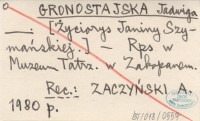 GRONOSTAJSKA Jadwiga
—: [Życiorys Janiny Szy-
mańskiej.] — Rps w
Muzeum Tatrz. w Zakopanem.
Rec.: ZACZYŃSKI A.
1980 p.